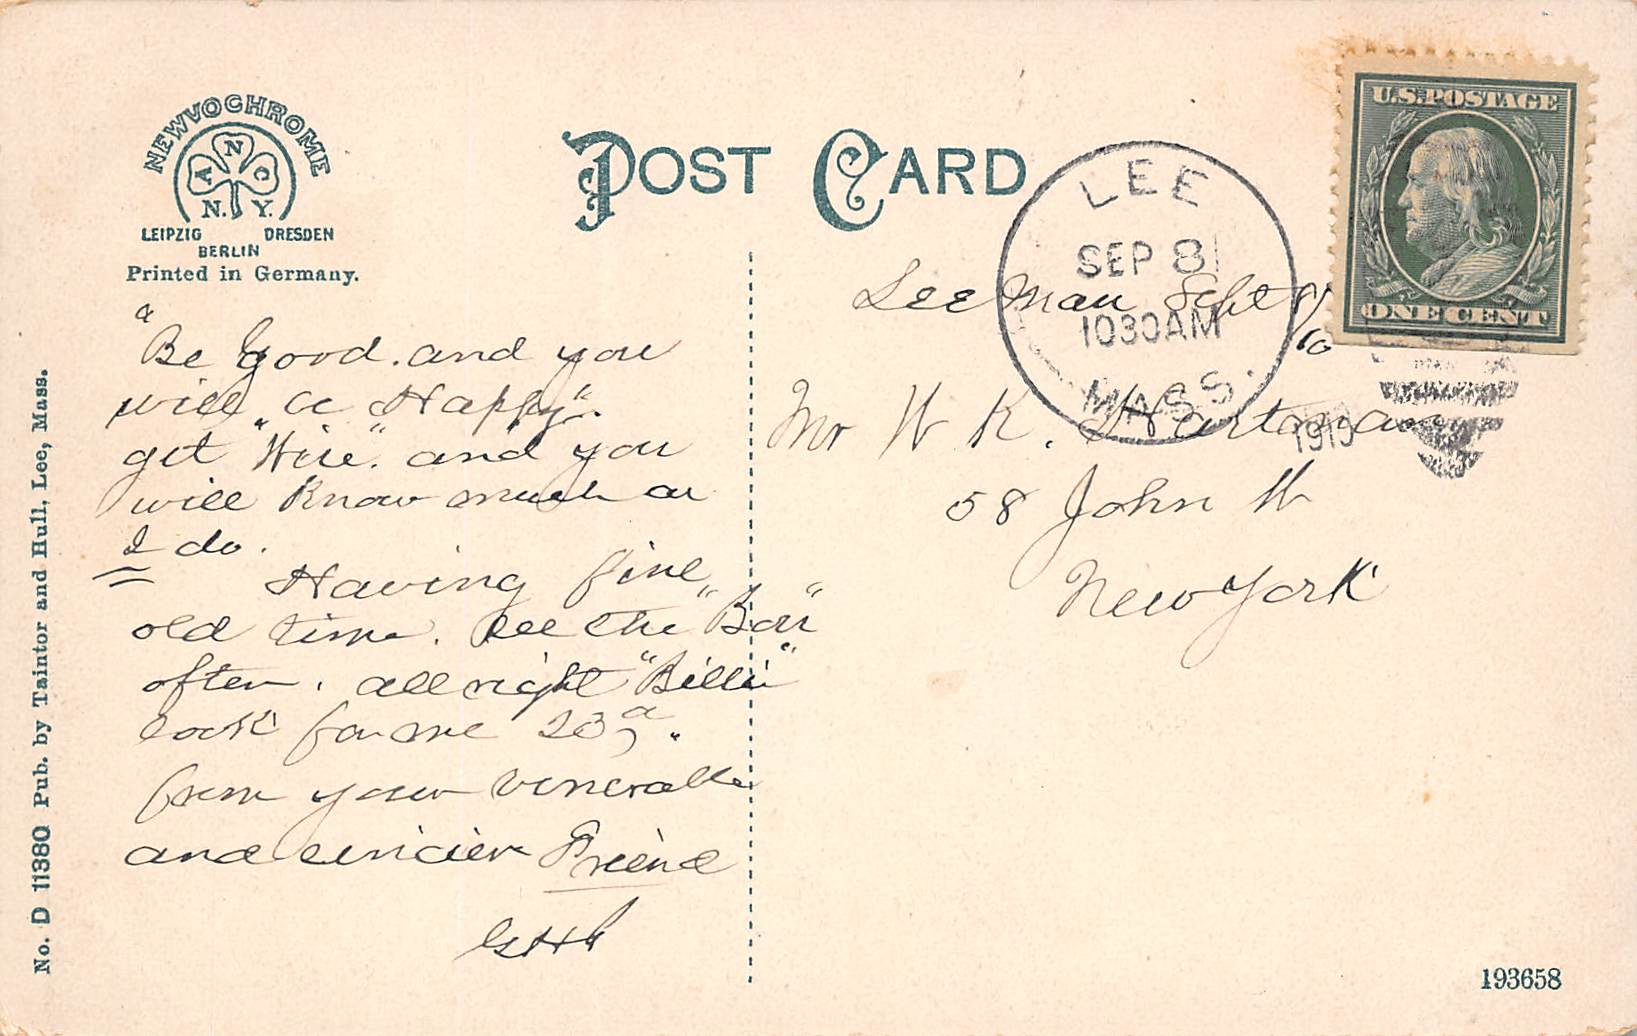 NEWVOCHROME
A N C
N. Y.
LEIPZIG DRESDEN
BERLIN
Printed in Germany.
POST CARD
U.S. POSTAGE
ONE CENT
LEE
SEP 8
1030AM
MASS.
1910
Lee Mass Sept 8/10
Mr W K. Hartman
58 John St
New York
"Be good. and you
will be Happy".
get "Wise". and you
will Know much as
I do.
Having fine
old time. see the "Boss"
often. all right "Billie"
look for me
from your venerable
and sincier Friend
No. D 11380 Pub. by Taintor and Hull, Lee, Mass.
193658